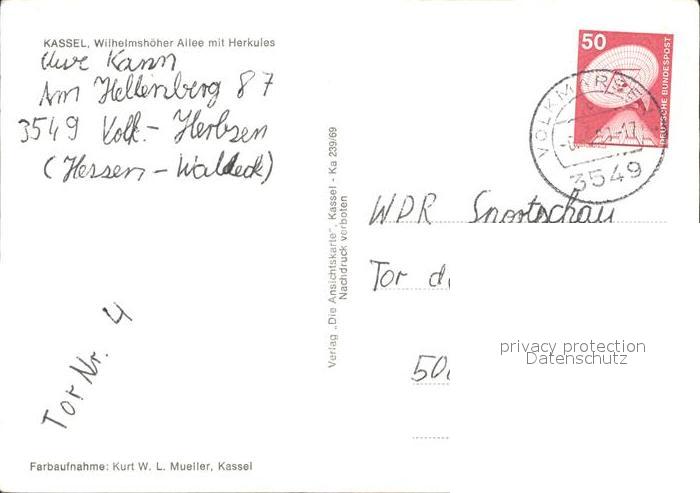 KASSEL, Wilhelmshöher Allee mit Herkules
Uwe Kann
Am Hellenberg 87
3549 Volk.- Herbsen
(Hessen - Waldeck)
Tor Nr. 4
Farbaufnahme: Kurt W. L. Mueller, Kassel
Verlag „Die Ansichtskarte", Kassel - Ka 239/69
Nachdruck verboten
50
DEUTSCHE BUNDESPOST
VOLKMARSEN
3549
WDR Sportschau
Tor d
50
privacy protection
Datenschutz